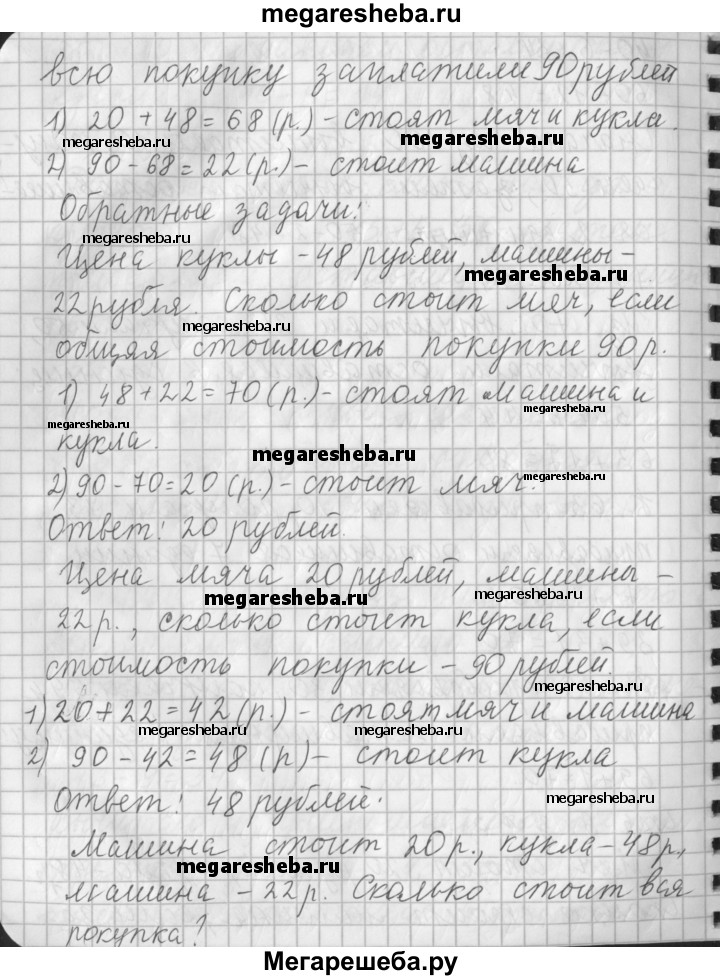 megaresheba.ru
всю покупку заплатили 90 рублей
1) 20 + 48 = 68 (р.) - стоят мяч и кукла.
megaresheba.ru
megaresheba.ru
2) 90 - 68 = 22 (р.) - стоит машина
Обратные задачи:
megaresheba.ru
Цена куклы - 48 рублей, машины -
megaresheba.ru
22 рубля Сколько стоит мяч, если
megaresheba.ru
общая стоимость покупки 90 р.
1) 48 + 22 = 70 (р.) - стоят машина и
megaresheba.ru
megaresheba.ru
кукла.
megaresheba.ru
2) 90 - 70 = 20 (р.) - стоит мяч.
megaresheba.ru
Ответ: 20 рублей.
Цена мяча 20 рублей, машины -
megaresheba.ru
megaresheba.ru
22 р., сколько стоит кукла, если
стоимость покупки - 90 рублей
megaresheba.ru
1) 20 + 22 = 42 (р.) - стоят мяч и машина
megaresheba.ru
megaresheba.ru
2) 90 - 42 = 48 (р) - стоит кукла
Ответ: 48 рублей.
megaresheba.ru
Машина стоит 20 р., кукла - 48 р,
megaresheba.ru
машина - 22 р. Сколько стоит вая
покупка?
Мегарешеба.ру